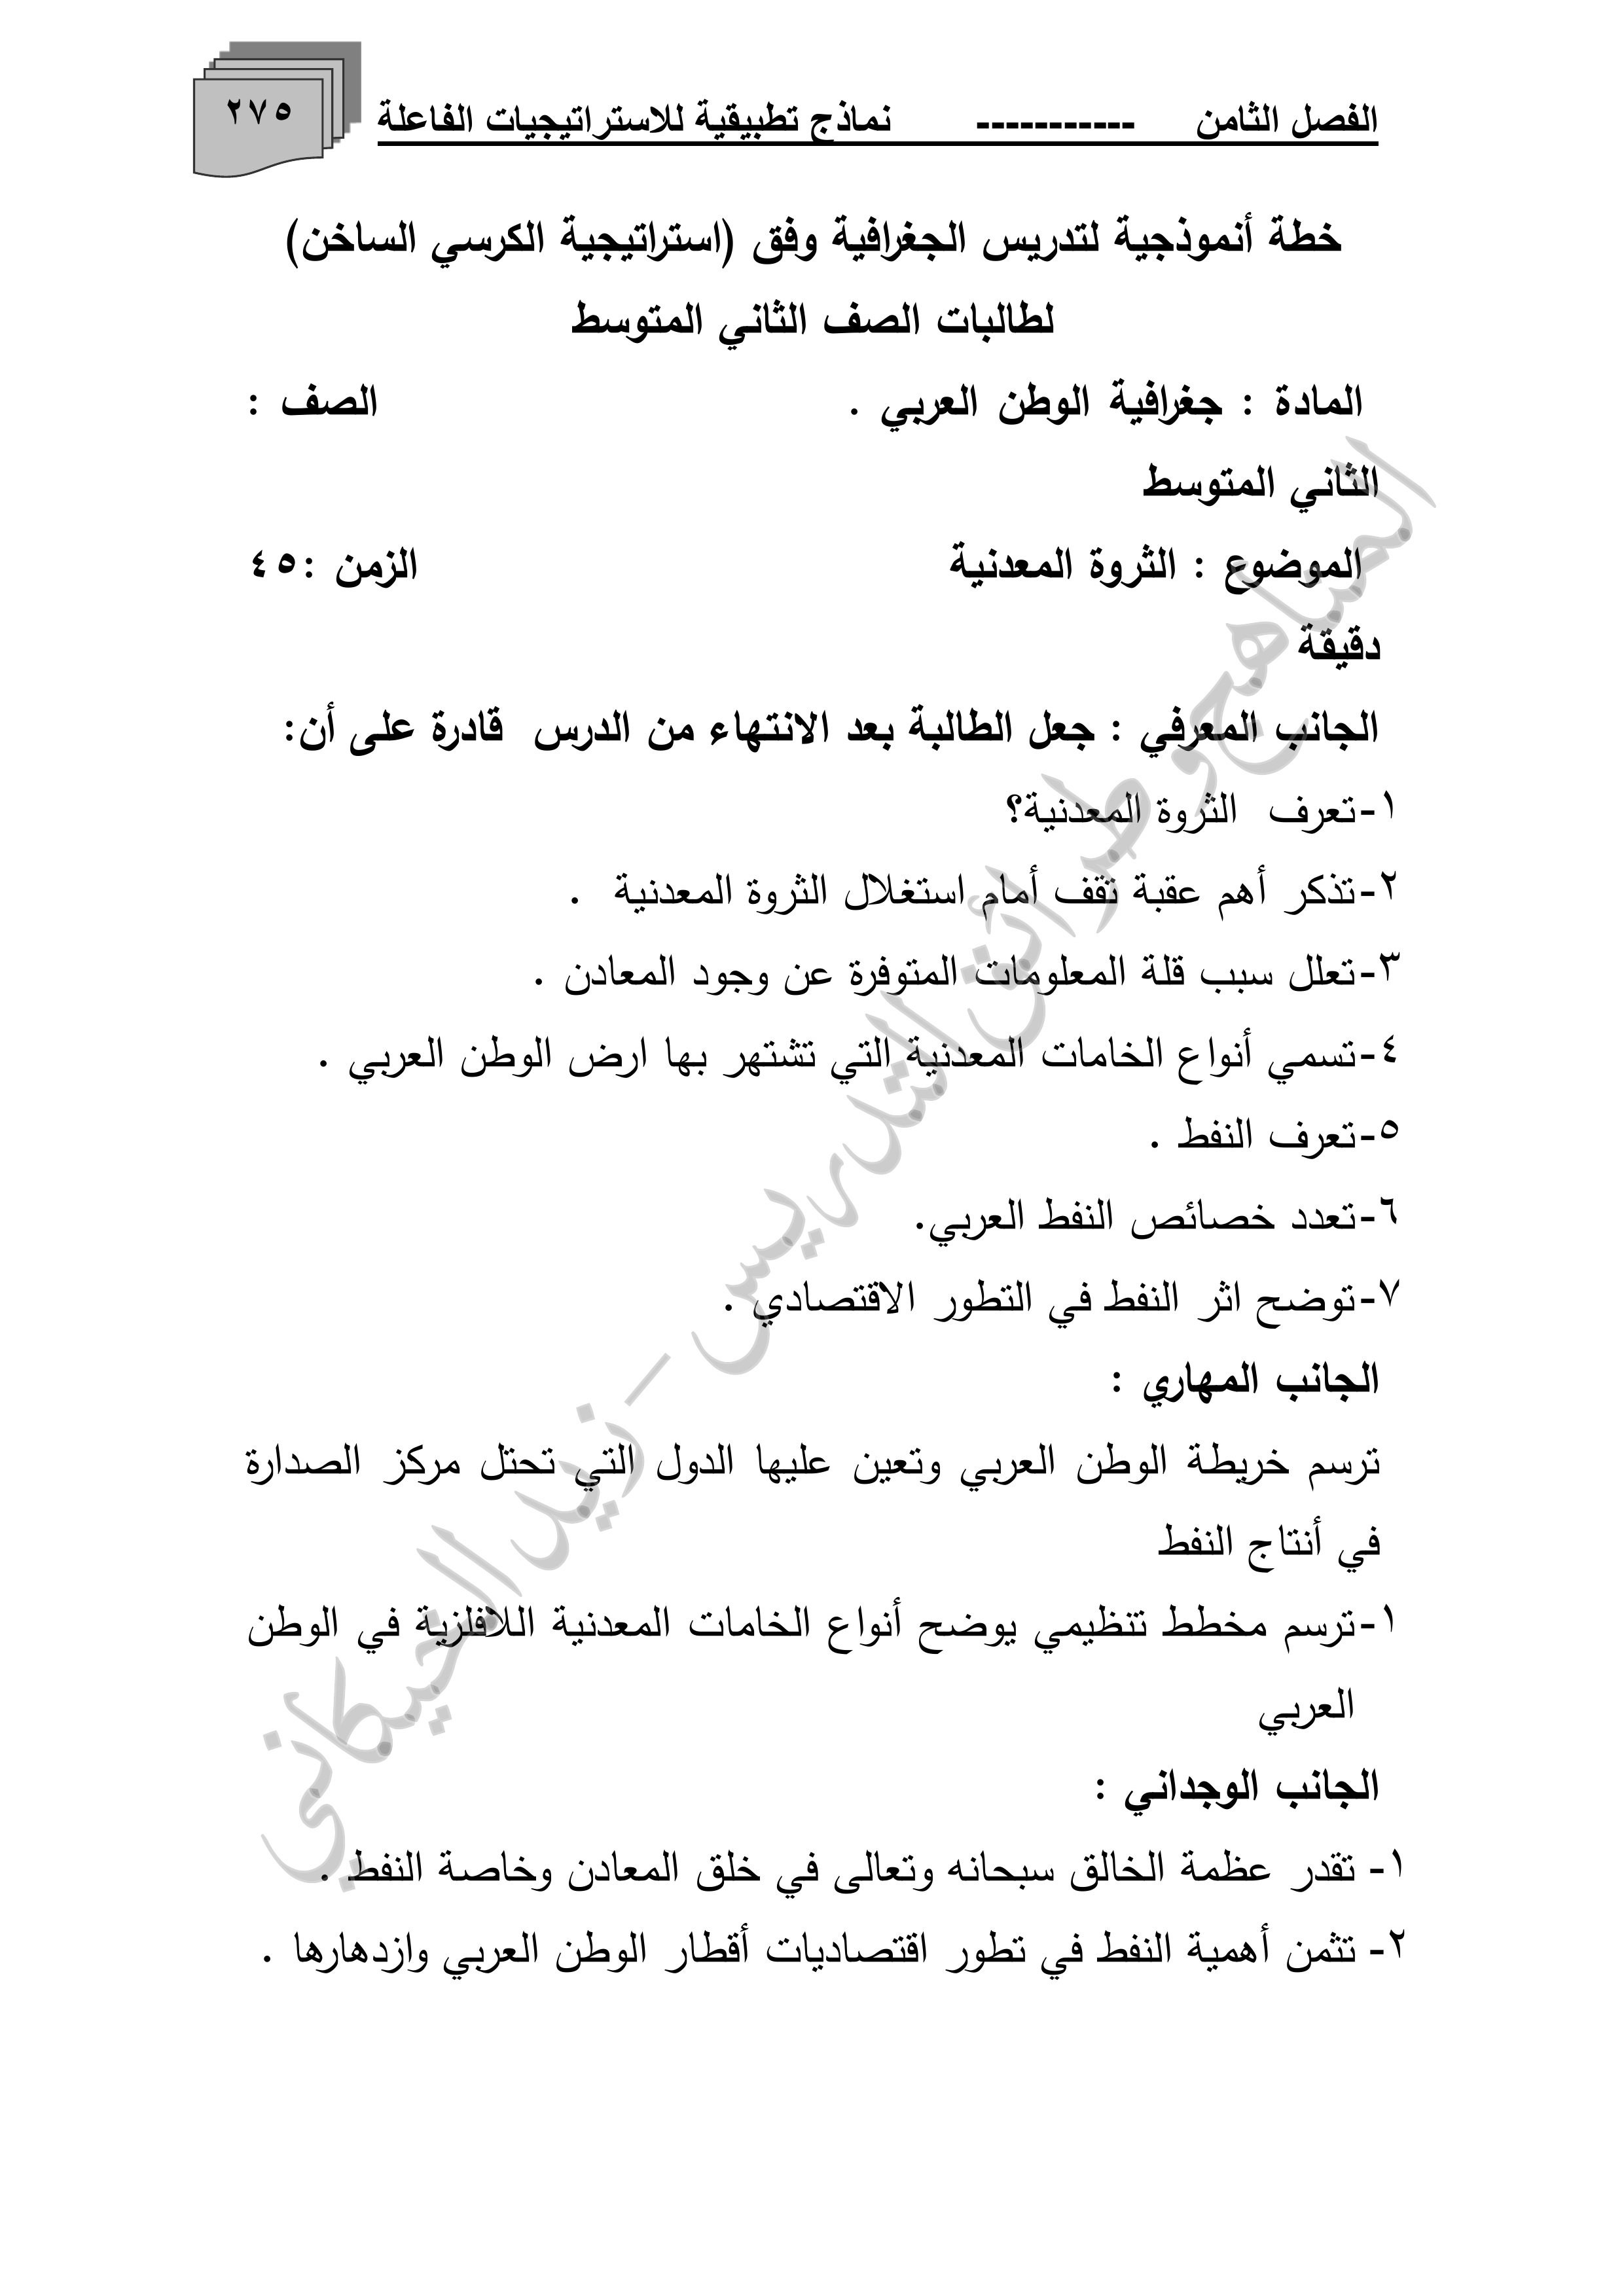 الفصل الثامن ----------- نماذج تطبيقية للاستراتيجيات الفاعلة
٢٧٥
خطة أنموذجية لتدريس الجغرافية وفق (استراتيجية الكرسي الساخن)
لطالبات الصف الثاني المتوسط
المادة : جغرافية الوطن العربي . الصف :
الثاني المتوسط
الموضوع : الثروة المعدنية الزمن :٤٥
دقيقة
الجانب المعرفي : جعل الطالبة بعد الانتهاء من الدرس قادرة على أن:
١-تعرف الثروة المعدنية؟
٢-تذكر أهم عقبة تقف أمام استغلال الثروة المعدنية .
٣-تعلل سبب قلة المعلومات المتوفرة عن وجود المعادن .
٤-تسمي أنواع الخامات المعدنية التي تشتهر بها ارض الوطن العربي .
٥-تعرف النفط .
٦-تعدد خصائص النفط العربي.
٧-توضح اثر النفط في التطور الاقتصادي .
الجانب المهاري :
ترسم خريطة الوطن العربي وتعين عليها الدول التي تحتل مركز الصدارة
في أنتاج النفط
١-ترسم مخطط تنظيمي يوضح أنواع الخامات المعدنية اللافلزية في الوطن
العربي
الجانب الوجداني :
١- تقدر عظمة الخالق سبحانه وتعالى في خلق المعادن وخاصة النفط .
٢- تثمن أهمية النفط في تطور اقتصاديات أقطار الوطن العربي وازدهارها .
المناهج وطرائق التدريس - زيد الخيكاني